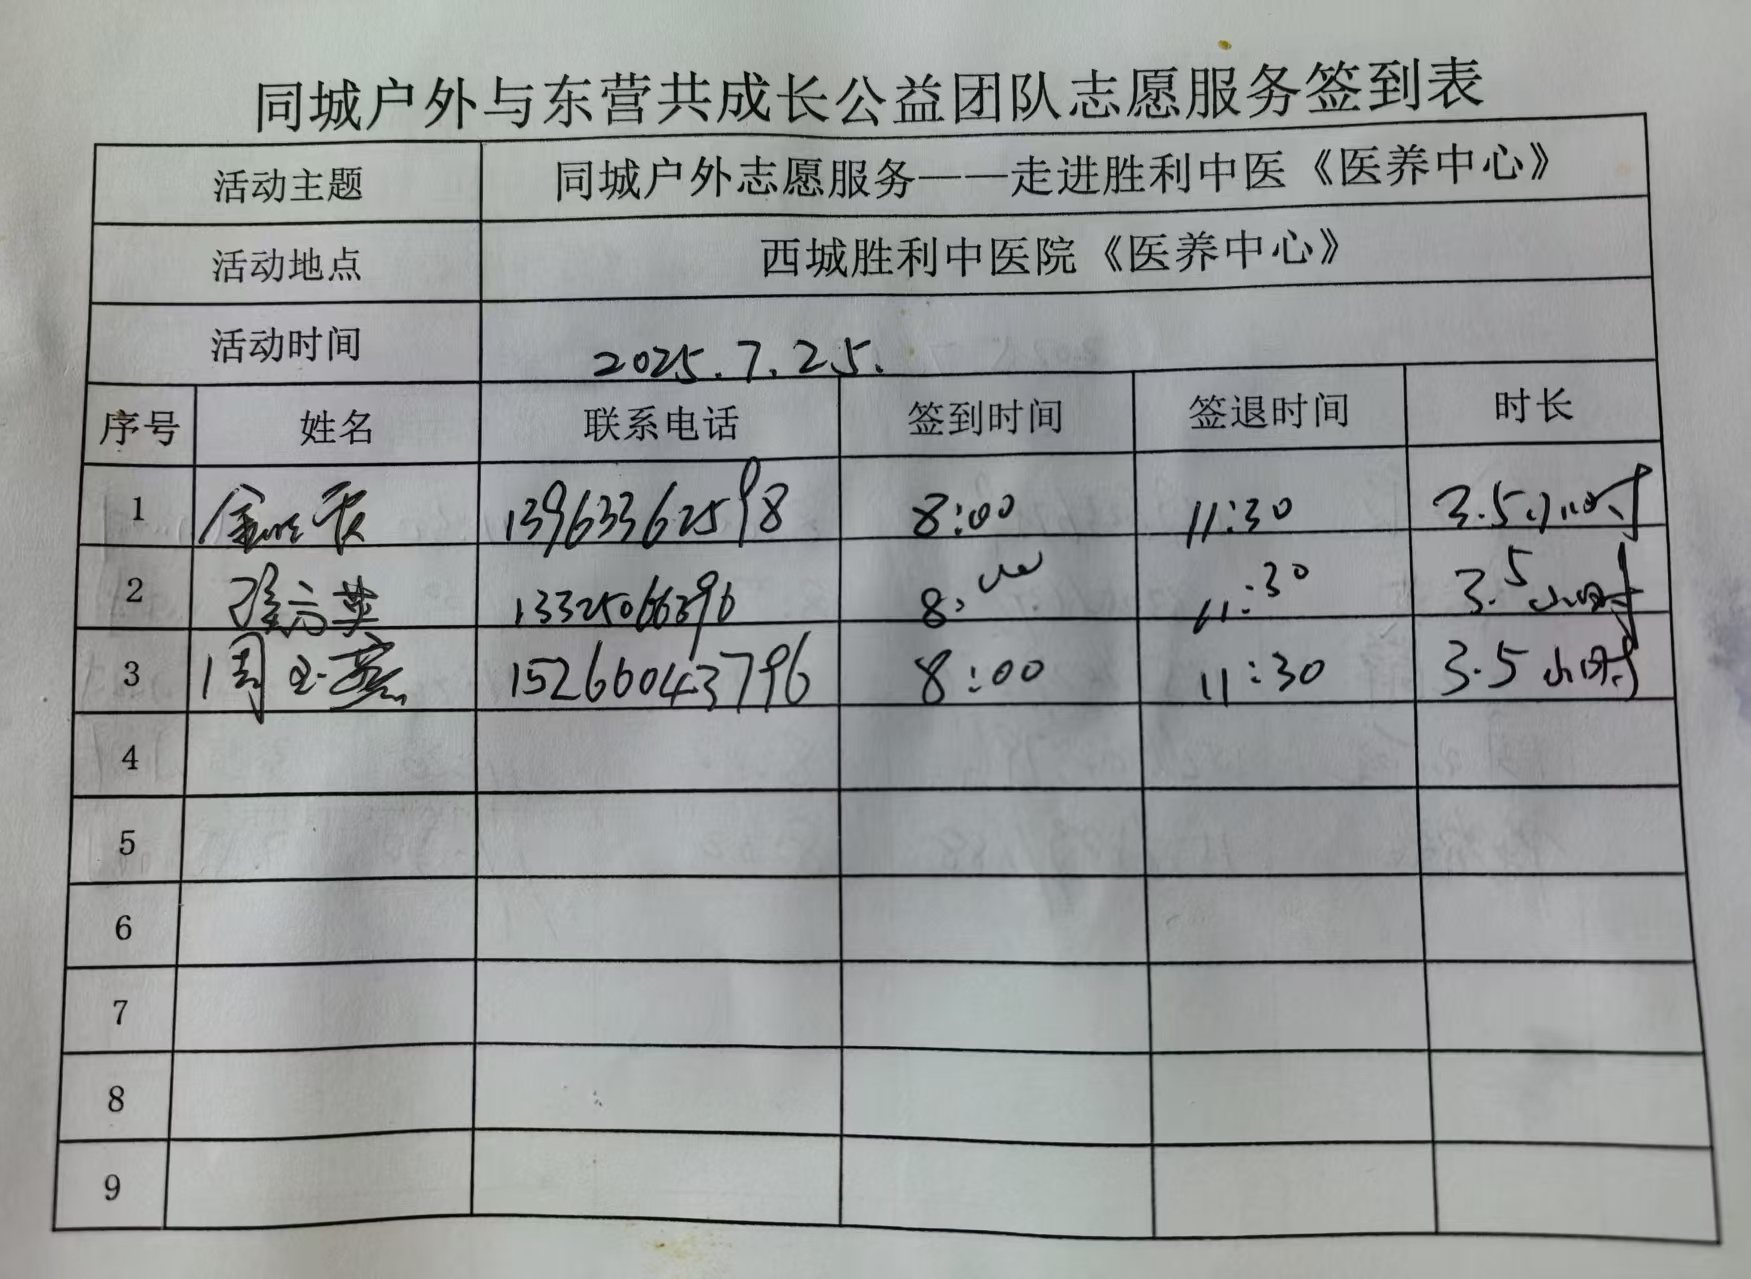 同城户外与东营共成长公益团队志愿服务签到表
活动主题 同城户外志愿服务——走进胜利中医《医养中心》
活动地点 西城胜利中医院《医养中心》
活动时间 2025.7.25.
序号 姓名 联系电话 签到时间 签退时间 时长
1 13963362598 8:00 11:30 3.5小时
2 英 13325066396 8:00 11:30 3.5小时
3 周玉 15266043796 8:00 11:30 3.5小时
4
5
6
7
8
9